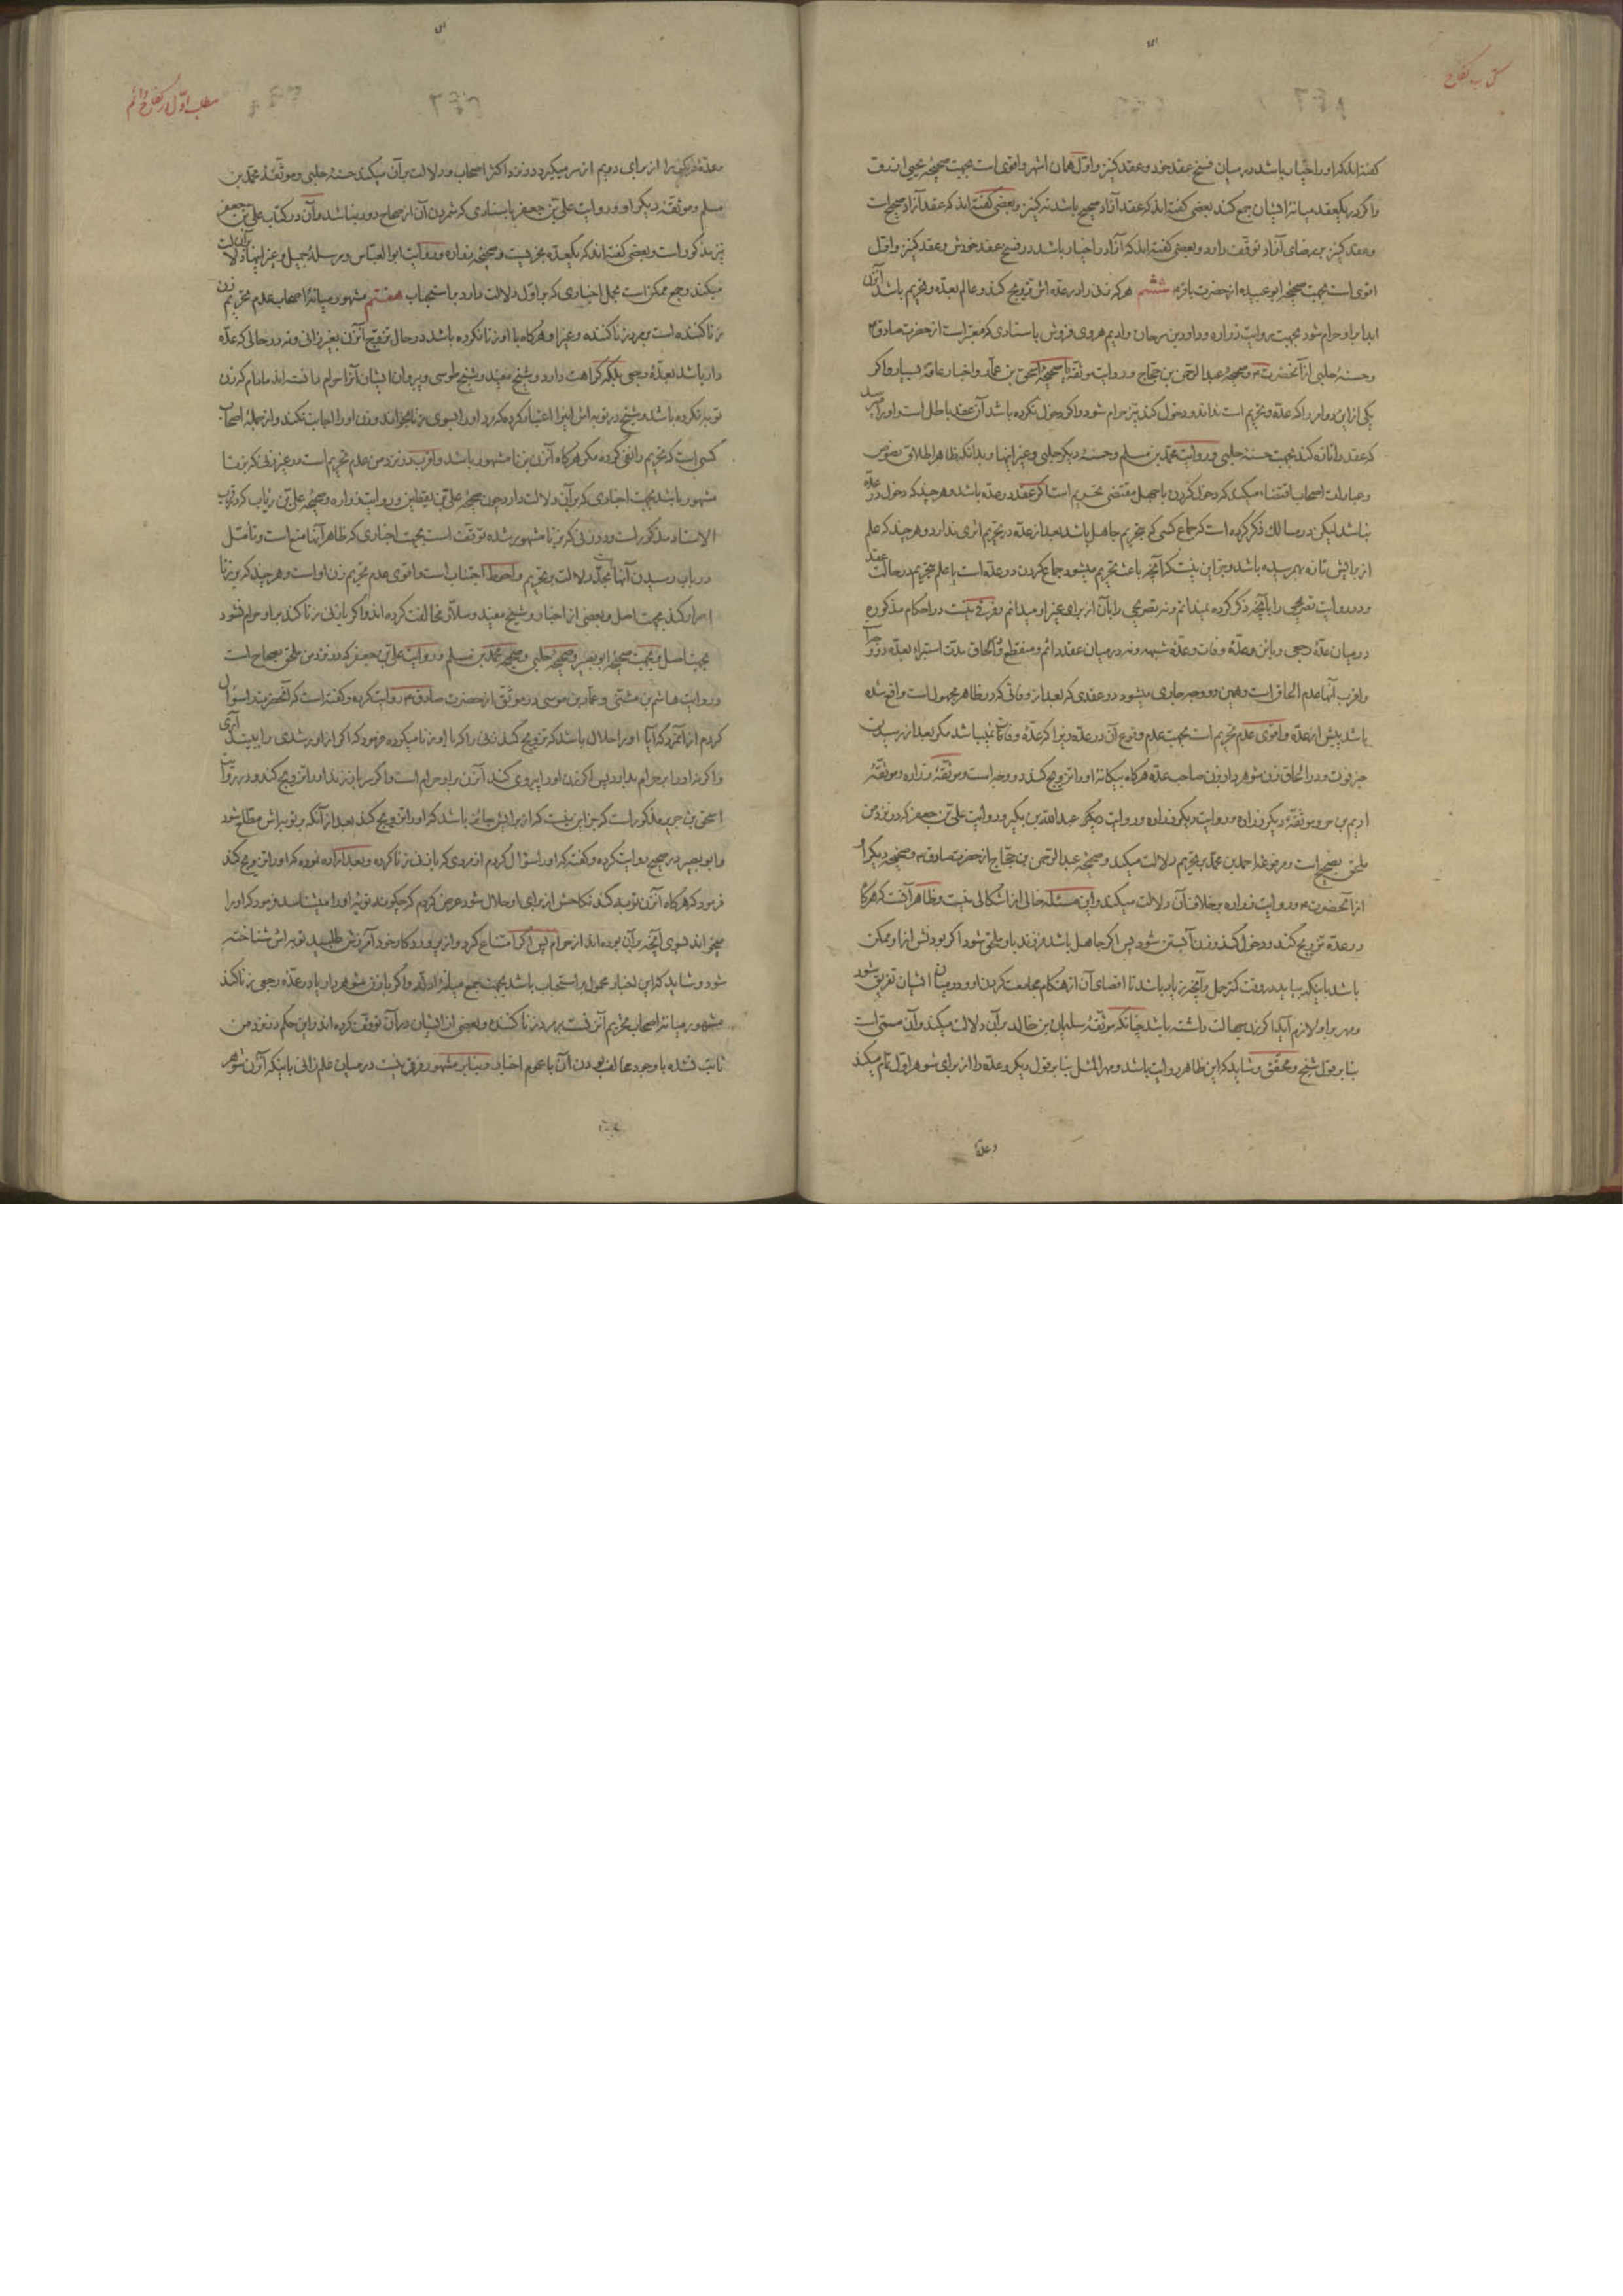 کتاب نکاح
گفته‌اند که او را اختیار باشد در میان فسخ عقد خود و عقد کنیز و اول همان اشهر و اقوی است بجهت صحیحهٔ
و اگر در یکعقد میانهٔ ایشان جمع کند بعضی گفته‌اند که عقد آزاد صحیح باشد نه کنیز و بعضی گفته‌اند که عقد آزاد صحیح است
و عقد کنیز بر رضای آزاد توقف دارد و بعضی گفته‌اند که آزاد را اختیار باشد در فسخ عقد خودش و عقد کنیز و اول
اقوی است بجهت صحیحهٔ ابو عبیده از حضرت باقر ششم هر که زنی را در عده‌اش تزویج کند و عالم بعده و تحریم باشد آنزن
ابدا بر او حرام شود بجهت روایت زراره و داود بن سرحان و ادیم هروی فروش باسنادی که معتبر است از حضرت صادق
و حسنهٔ حلبی از آنحضرت و صحیحهٔ عبد الرحمن بن حجاج و روایت موثقه یا صحیحهٔ اسحق بن عمار و اخبار عامه بسیار و اگر
یکی ازین دو امر را که عده و تحریم است نداند و دخول کند نیز حرام شود و اگر دخول نکرده باشد آن عقد باطل است و او را میرسد
که عقد را تازه کند بجهت حسنهٔ حلبی و روایت محمد بن مسلم و حسنهٔ دیگر حلبی و غیر اینها و بدانکه ظاهر اطلاق نصوص
و عبارات اصحاب اقتضاء میکند که دخول کردن با جهل مقتضی تحریم است اگر عقد در عده باشد و هر چند که دخول در عده
نباشد لیکن در مسالک ذکر کرده است که جماع کسی که بتحریم جاهل باشد بعد از عده در تحریم اثری ندارد و هر چند که علم
از برایش تازه بهم رسیده باشد و جز این نیست که آنچه باعث تحریم میشود جماع کردن در عده است یا علم بتحریم در حالت عقد
و در روایت تصریحی را بآنچه ذکر کرده نمیدانم و نه تصریحی را بآن از برای غیر او میدانم و فرقی نیست در احکام مذکوره
در میان عدهٔ رجعی و باین و عدهٔ وفات و عدهٔ شبهه و نه در میان عقد دائم و منقطع و در الحاق مدت استبراء بعده دو وجه است
و اقرب آنها عدم الحاق است و همین دو وجه جاری میشود در عقدی که بعد از وفاتی که در ظاهر مجهول است واقع شده
باشد پیش از عده و اقوی عدم تحریم است بجهت عدم وقوع آن در عده زیرا که عدهٔ وفات نمیباشد مگر بعد از رسیدن
خبر فوت و در الحاق زن شوهردار بزن صاحب عده هرگاه بیگانه او را تزویج کند دو وجه است و موثقهٔ زراره و موثقهٔ
ادیم بن حر و موثقهٔ دیگر زراره و روایت دیگر زراره و روایت دیگر عبد الله بن بکیر و روایت علی بن جعفر که در نزد من
ملحق بصحیح است و مرفوعهٔ احمد بن محمد بر تحریم دلالت میکند و صحیحهٔ عبد الرحمن بن حجاج از حضرت صادق و صحیحهٔ دیگر او
از آنحضرت و روایت زراره بر خلاف آن دلالت میکند و این مسئله خالی از اشکالی نیست و ظاهر آنست که هرگاه
در عده تزویج کند و دخول کند و زن آبستن شود پس اگر جاهل باشد فرزند باو ملحق شود اگر بودنش از او ممکن
باشد باینکه بیاید در وقت کمتر حمل و آنچه زیاد باشد تا اقصای آن از هنگام مجامعت کردن او و در میان ایشان تفریق شود
و مهر بر او لازم آید اگر زن جهالت داشته باشد چنانکه موثقهٔ سلیمان بن خالد بر آن دلالت میکند و آن مسمی است
بنا بر قول شیخ و محقق و شاید که این ظاهر روایت باشد و مهر المثل بنا بر قول دیگر و عده را از برای شوهر اول تمام میکند
و عدهٔ
مطلب اول در نکاح دائم
و عدهٔ دیگری را از برای دویم از سر میگیرد در نزد اکثر اصحاب و دلالت بر آن میکند حسنهٔ حلبی و موثقهٔ محمد بن
مسلم و موثقهٔ دیگر او و روایت علی بن جعفر باسنادی که شمردن آن از صحاح دور نباشد و آن در کتاب علی بن جعفر
نیز مذکور است و بعضی گفته‌اند که یکعده مجزیست و صحیحهٔ زراره و روایت ابو العباس و مرسلهٔ جمیل و غیر اینها بر آن دلالت
میکند و جمع ممکن است بحمل اخباری که بر اول دلالت دارد بر استحباب هفتم مشهور میانهٔ اصحاب عدم تحریم زن
زنا کننده است بر مرد زنا کننده و غیر او هرگاه با او زنا نکرده باشد در حال تزویج آنزن بغیر زانی و نه در حالی که عده
دار باشد بعدهٔ رجعی بلکه کراهت دارد و شیخ مفید و شیخ طوسی و پیروان ایشان آنرا حرام دانسته‌اند مادام که زن
توبه نکرده باشد و شیخ در توبه‌اش اینرا اعتبار کرده که مرد او را بسوی زنا بخواند و زن او را اجابت نکند و از جملهٔ اصحاب
کسی است که تحریم را نفی کرده مگر هرگاه آنزن بزنا مشهور باشد و اقرب در نزد من عدم تحریم است در غیر زنی که بزنا
مشهور باشد بجهت اخباری که بر آن دلالت دارد چون صحیحهٔ علی بن یقطین و روایت زراره و صحیحهٔ علی بن ریاب که در قرب
الاسناد مذکور است و در زنی که بزنا مشهور شده توقف است بجهت اخباری که ظاهر آنها منع است و تأمل
در باب رسیدن آنها بحد دلالت بر تحریم و احوط اجتناب است و اقوی عدم تحریم زن او است و هر چند که بر زنا
اصرار کند بجهت اصل و بعضی از اخبار و شیخ مفید و سلار مخالفت کرده‌اند و اگر با زنی زنا کند بر او حرام نشود
بجهت اصل و بجهت صحیحهٔ ابو بصیر و صحیحهٔ حلبی و صحیحهٔ محمد بن مسلم و روایت علی بن جعفر که در نزد من ملحق بصحاح است
و روایت هاشم بن مثنی و عمار بن موسی در موثق از حضرت صادق روایت کرده و گفته است که آنحضرت را سؤال
کردم از آنمرد که آیا او را حلال باشد که تزویج کند زنی را که با او زنا میکرده فرمود که اگر از او رشدی را ببیند آری
و اگر نه او را بر حرام بدارد پس اگر زن او را پیروی کند آنزن بر او حرام است و اگر سر باز زند او را تزویج کند و در روایت
اسحق بن جریر مذکور است که جز این نیست که از برایش جائز باشد که او را تزویج کند بعد از آنکه بر توبه‌اش مطلع شود
و ابو بصیر در صحیح روایت کرده و گفت که او را سؤال کردم از مردی که با زنی زنا کرده و بعد اراده نموده که او را تزویج کند
فرمود که هرگاه آنزن توبه کند نکاحش از برای او حلال شود عرض کردم که چگونه توبهٔ او را میشناسد فرمود که او را
میخواند بسوی آنچه بر آن بوده‌اند از حرام پس اگر امتناع کرد و از پروردگار خود آمرزش طلبید توبه‌اش شناخته
شود و شاید که این اخبار محمول بر استحباب باشد بجهت جمع میانهٔ ادله و اگر با زن شوهردار یا در عدهٔ رجعی زنا کند
مشهور میانهٔ اصحاب تحریم آنزنست بر مرد زنا کننده و بعضی از ایشان در آن توقف کرده‌اند و این حکم در نزد من
ثابت نشده با وجود مخالف بودن آن با عموم اخبار و بنا بر مشهور فرقی نیست در میان علم زانی باینکه آنزن شوهر